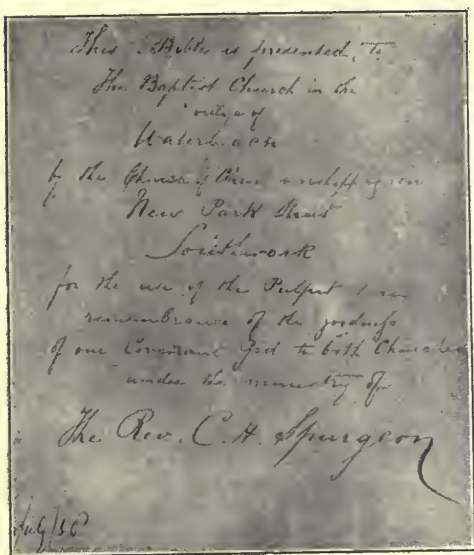 This Bible is presented, to
The Baptist Church in the
village of
Waterbeach
by the Church of Christ worshipping in
New Park Street
Southwark
for the use of the Pulpit & in
remembrance of the goodness
of our Covenant God to both Churches
under the ministry of
The Rev. C. H. Spurgeon
July /56